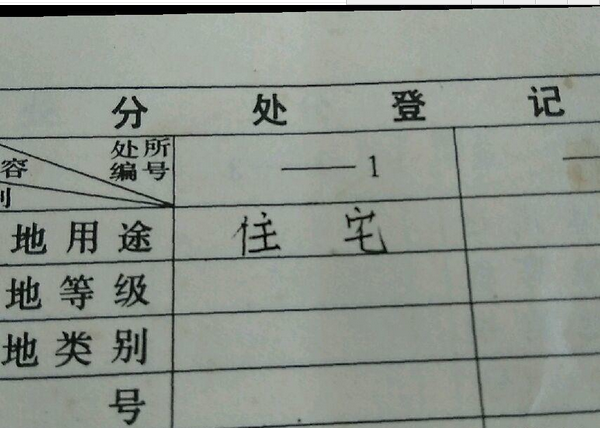 分处登记
容 处所
别 编号 ——1
地用途 住宅
地等级
地类别
号